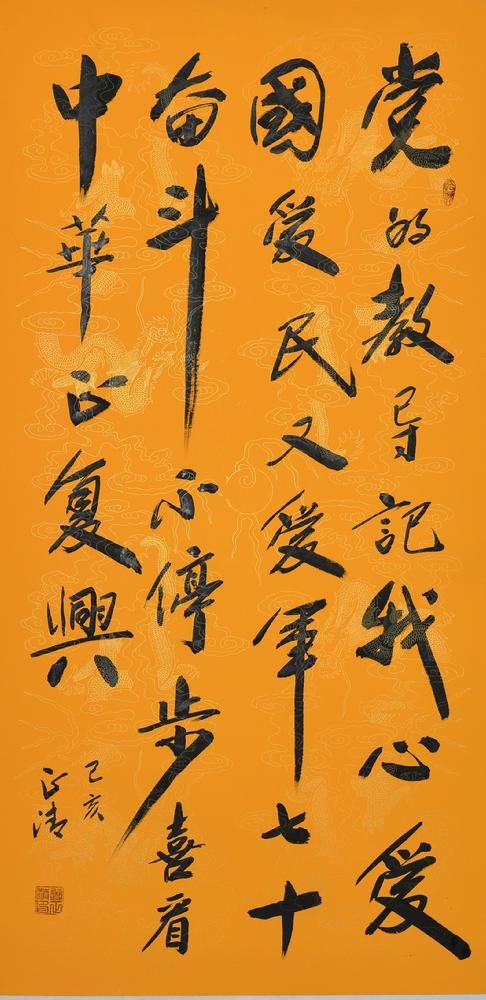 党的教导記我心爱
國爱民又爱軍七十
奋斗不停步喜看
中華正复興
己亥
正清